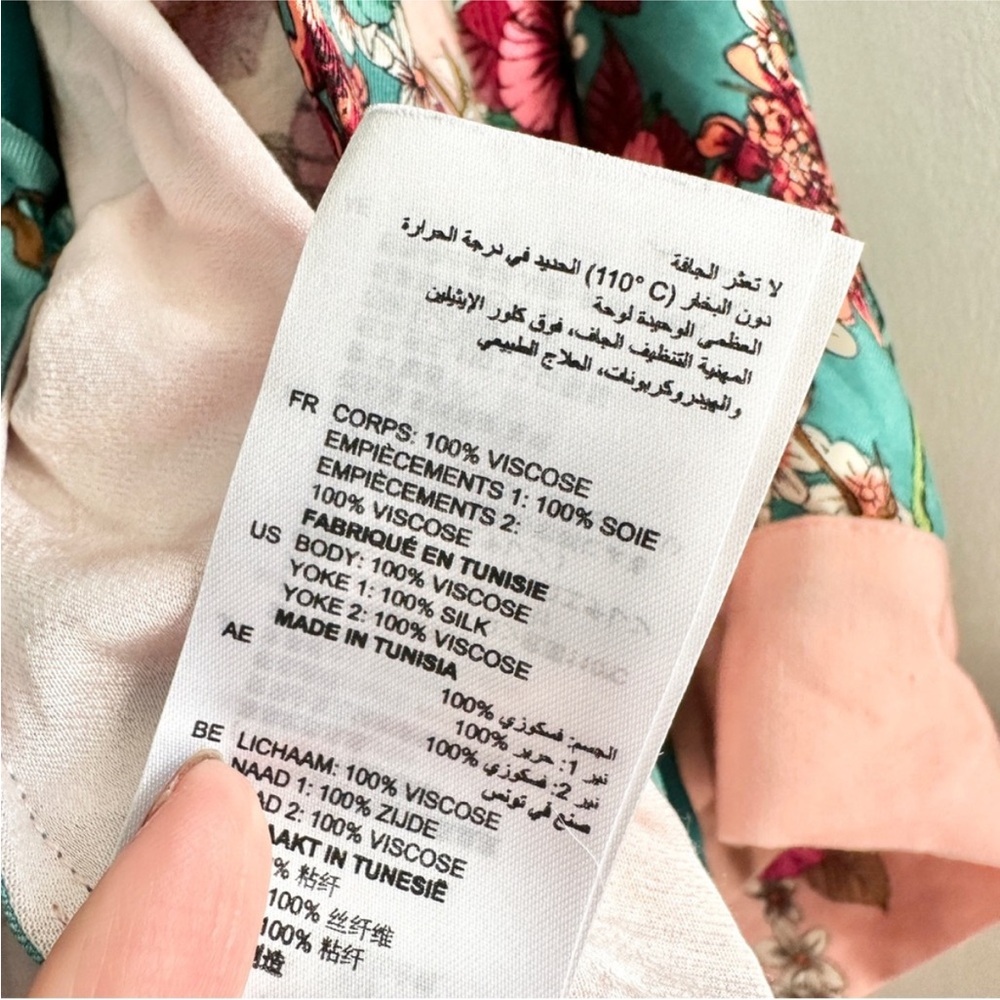 لا تعثر الجافة
دون البخار (110° C) الحديد في درجة الحرارة
العظمى الوحيدة لوحة
المهنية التنظيف الجاف، فوق كلور الإيثيلين
والهيدروكربونات، العلاج الطبيعي
FR CORPS: 100% VISCOSE
EMPIÈCEMENTS 1: 100% SOIE
EMPIÈCEMENTS 2:
100% VISCOSE
FABRIQUÉ EN TUNISIE
US BODY: 100% VISCOSE
YOKE 1: 100% SILK
YOKE 2: 100% VISCOSE
MADE IN TUNISIA
AE
الجسم: فسكوزي %100
نير 1: حرير %100
نير 2: فسكوزي %100
صنع في تونس
BE LICHAAM: 100% VISCOSE
NAAD 1: 100% ZIJDE
2: 100% VISCOSE
IN TUNESIË
% 粘纤
100% 丝纤维
100% 粘纤
造